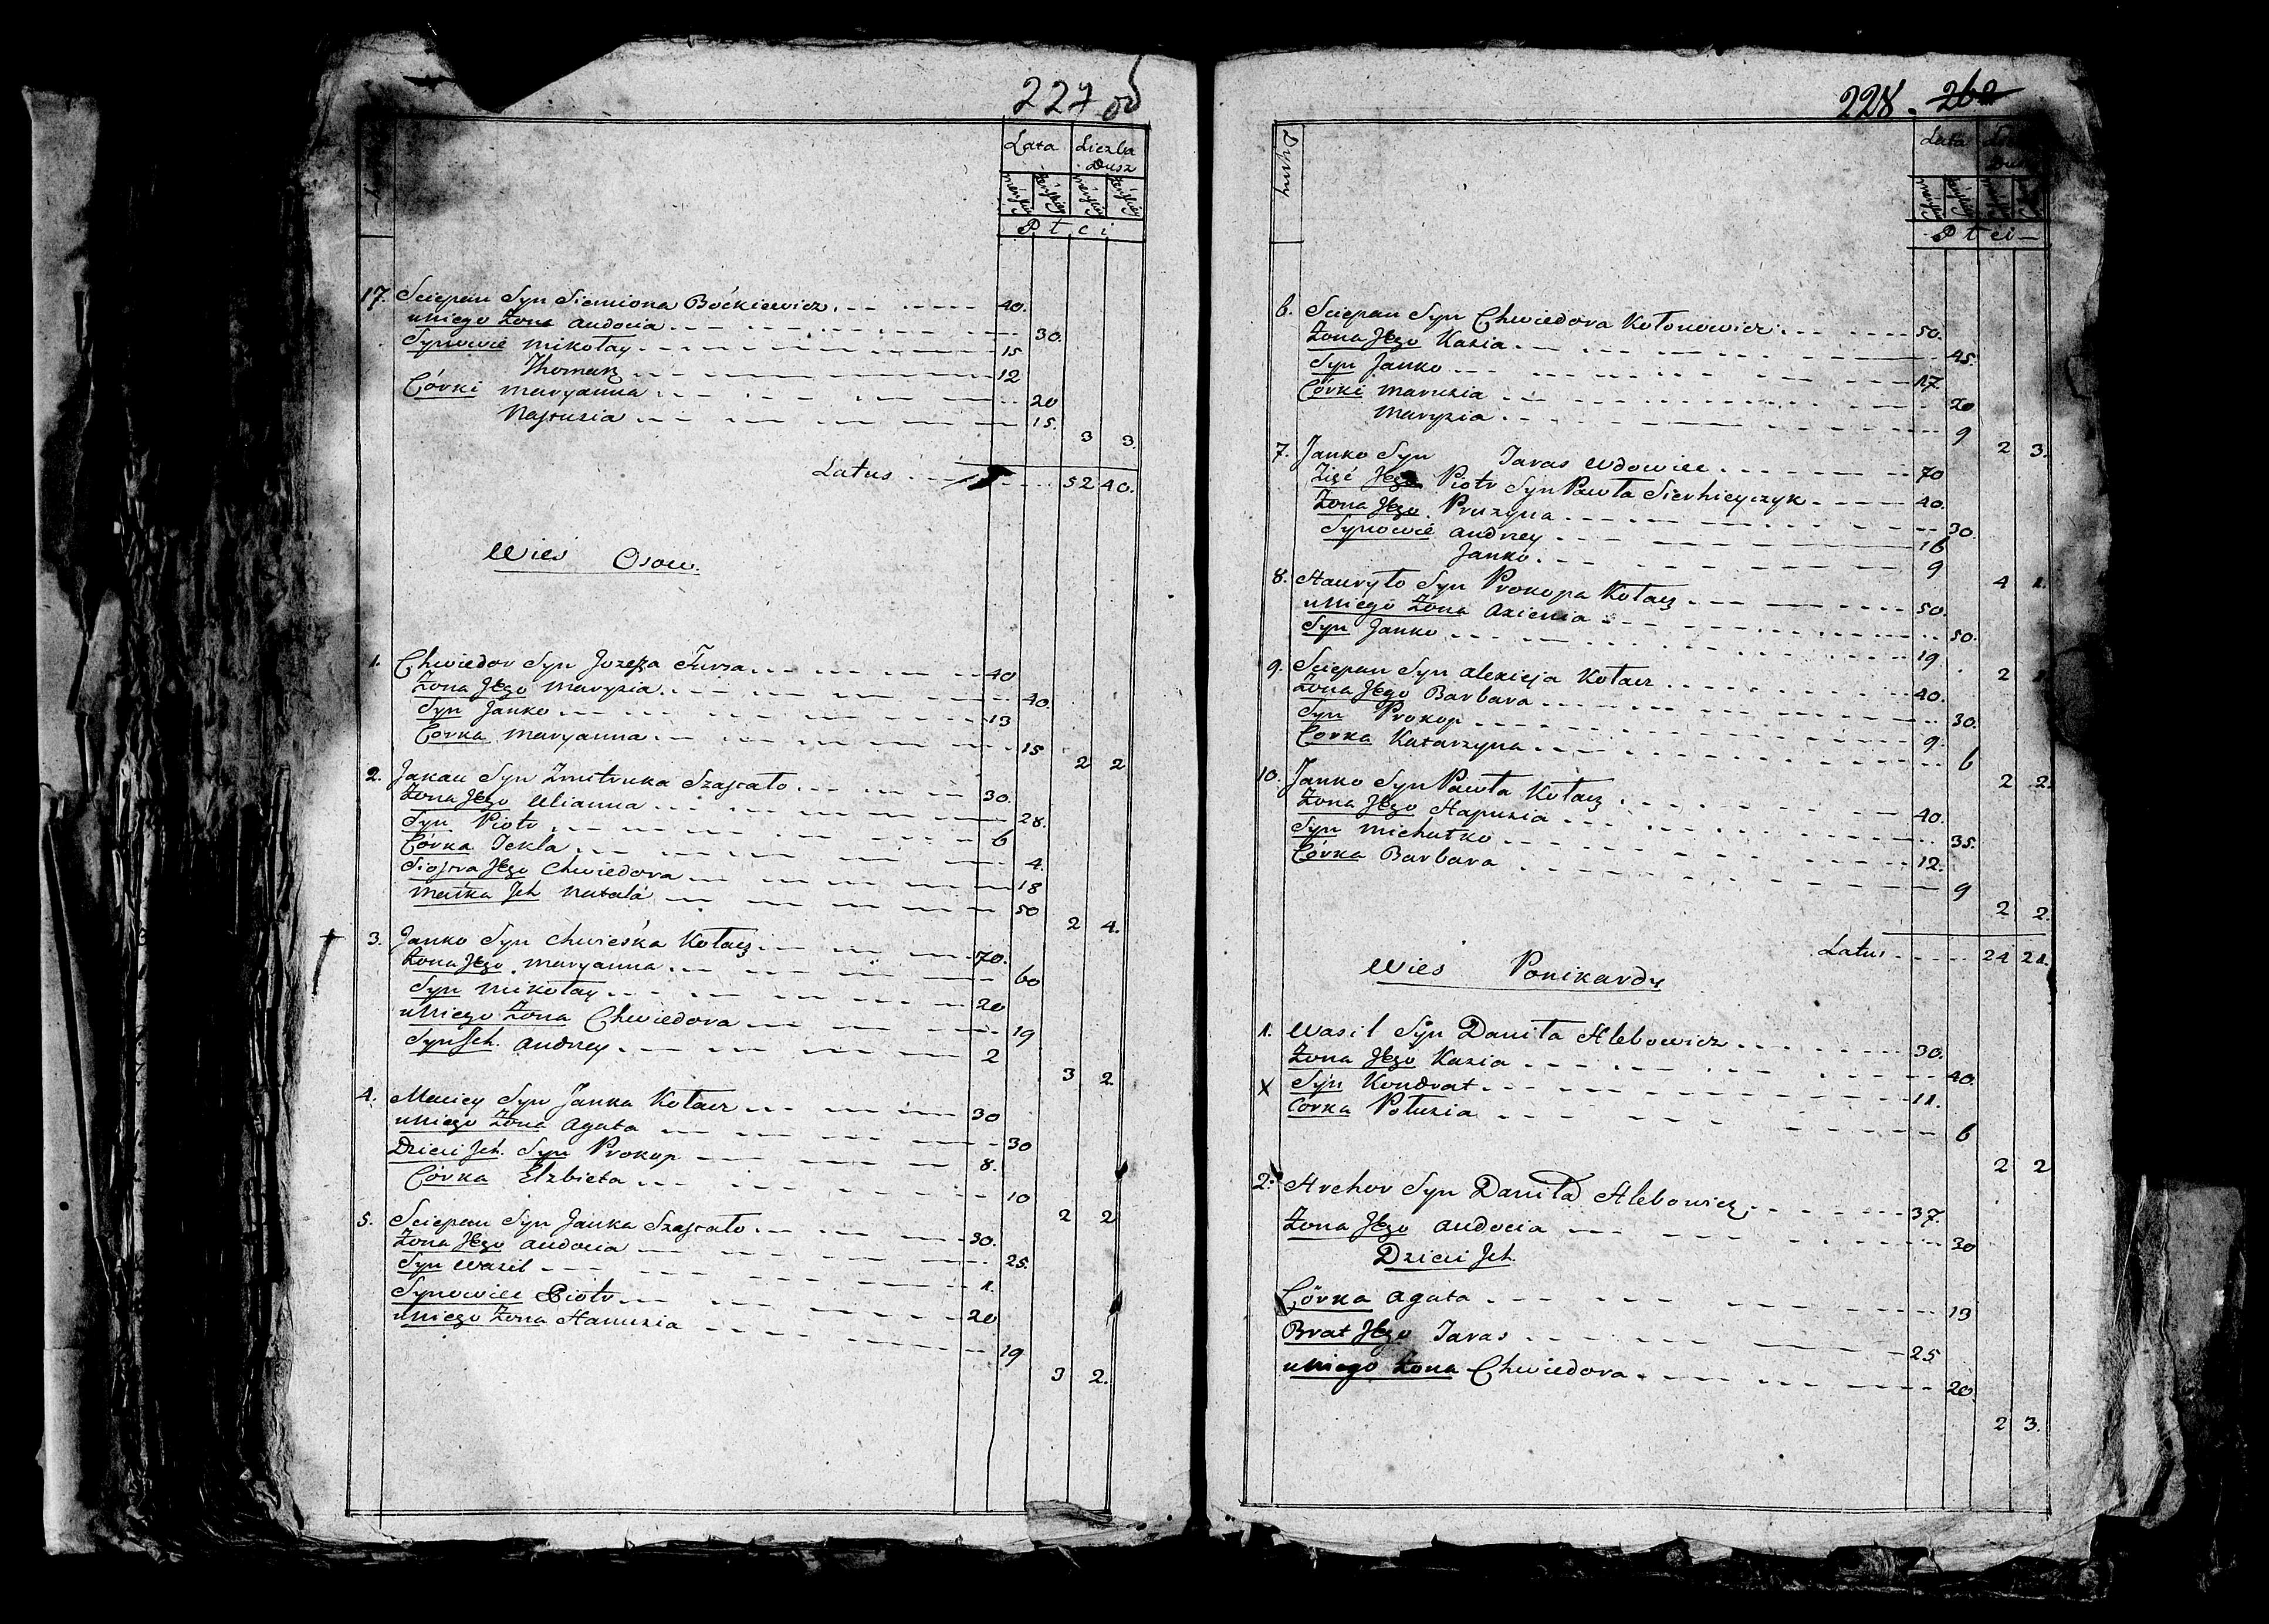 227 об
Lata Liczba Dusz
Płci
17. Sciepan Syn Siemiona Boćkiewicz 40.
u Niego Żona Audocia 30.
Synowie Mikołay 15
Thomasz 12
Córki Maryanna 20
Nastusia 15. 3 3.
Latus 52 40.
Wieś Osow.
1. Chwiedor Syn Jozefa Fursa 40
Żona Jego Marysia 40.
Syn Janko 13
Corka Maryanna 15 2 2
2. Jakau Syn Zmitruka Szastało 30.
Żona Jego Ulianna 28.
Syn Piotr 6
Córka Tekla 4.
Siostra Jego Chwiedora 18
Matka Jch Natala 50 2 4.
3. Janko Syn Chwieśka Kołacz 70.
Żona Jego Maryanna 60
Syn Mikołay 20
u Niego Żona Chwiedora 19
Syn Jch. Andrey 2 3 2.
4. Maciey Syn Janka Kołacz 30
u Niego Żona Agata 30
Dzieci Jch. Syn Prokop 8.
Córka Elzbieta 10 2 2
5. Sciepan Syn Janka Szastało 30.
Żona Jego Audocia 25.
Syn Wasil 1.
Synowiec Piotr 20
u Niego Żona Hanusia 19 3 2.
228. 262
Dymy
Lata
Płci
6. Sciepan Syn Chwiedora Kołonowicz 50.
Żona Jego Kasia 45.
Syn Janko 17.
Córki Marusia 20
Marysia 9 2 3.
7. Janko Syn Taras Wdowiec 70
Zięć Jego Piotr Syn Pawła Sierhieyczyk 40.
Żona Jego Pruzyna 30.
Synowie Andrey 16
Janko 9 4 1.
8. Hauryło Syn Prokopa Kołacz 50.
u Niego Żona Axienia 50.
Syn Janko 19 2
9. Sciepan Syn Alexieja Kołacz 40.
Żona Jego Barbara 30.
Syn Prokop 9.
Corka Katarzyna 6 2 2.
10. Janko Syn Pawła Kołacz 40.
Żona Jego Hapusia 35.
Syn Michałko 12.
Córka Barbara 9 2 2.
Latus 24 21.
Wieś Ponikardy
1. Wasil Syn Daniła Hlebowicz 30.
Żona Jego Kasia 40.
X Syn Kondrat 11.
Córka Połusia 6 2 2
2. Archor Syn Daniła Hlebowicz 37.
Żona Jego Audocia 30
Dzieci Jch
Córka Agata 13
Brat Jego Taras 25
u Niego Żona Chwiedora 20 2 3.